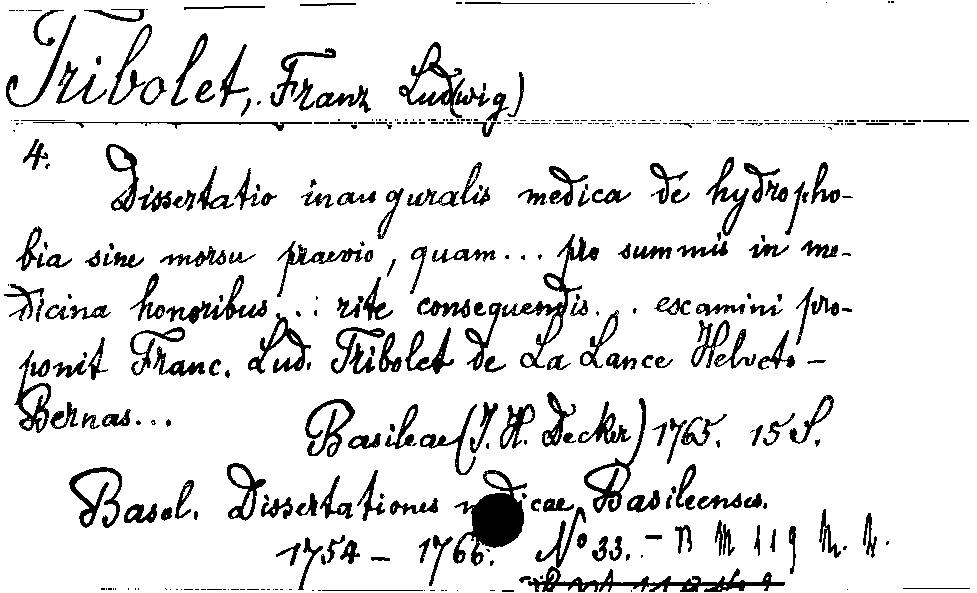 Tribolet, Franz Lud(wig)
4.
Dissertatio inauguralis medica de hydropho-
bia sine morsu praevio, quam... pro summis in me-
dicina honoribus... rite consequendis... examini pro-
ponit Franc. Lud. Tribolet de La Lance Helveto-
Bernas...
Basileae (J. H. Decker) 1765. 15 S.
Basel. Dissertationes medicae Basileenses.
1754 - 1766. No 33. -